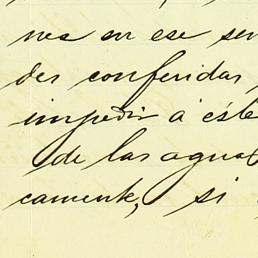 nes en ese sen
des conferidas
impedir á éste
de las agua
camente, si